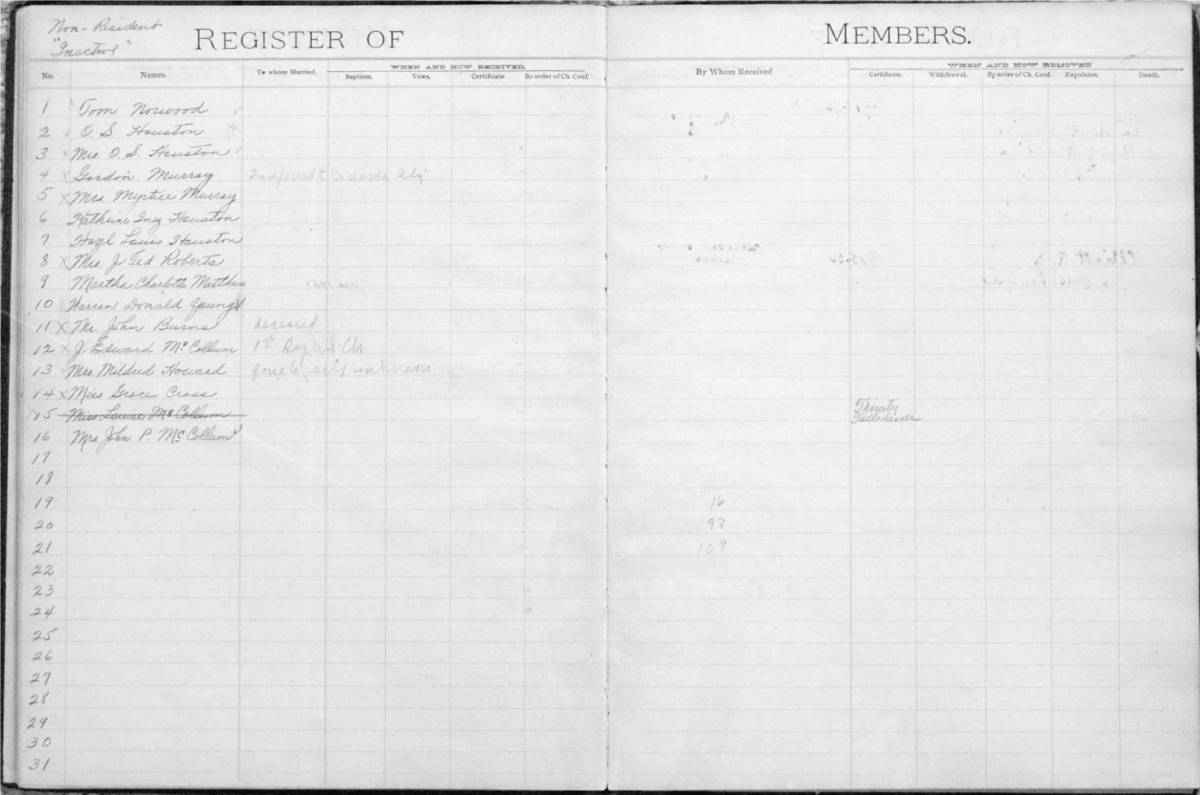 Non-Resident
"Inactive"
REGISTER OF MEMBERS.
No. Names. To whom Married. WHEN AND HOW RECEIVED. By Whom Received WHEN AND HOW REMOVED
Baptism. Vows. Certificate. By order of Ch. Conf. Certificate. Withdrawal. By order of Ch. Conf. Expulsion. Death.
1 Tom Norwood
2 O. S. Houston
3 Mrs. O. S. Houston
4 x Gordon Murray Transferred to
5 x Mrs. Myrtice Murray
6 Kathrine Inez Houston
7 Hazel Louis Houston
8 x Mrs. J Ted Roberts
9 Martha Charlotte Matthews
10 Warren Donald
11 x Mr. John Burns deceased
12 x J Edward McCollum 1st Baptist Ch
13 Mrs. Mildred Howard unknown
14 x Miss Grace Cross
15 Miss Louise McCollum Trinity
Tallahassee
16 Mrs John P. McCollum
17
18
19 16
20 92
21 109
22
23
24
25
26
27
28
29
30
31